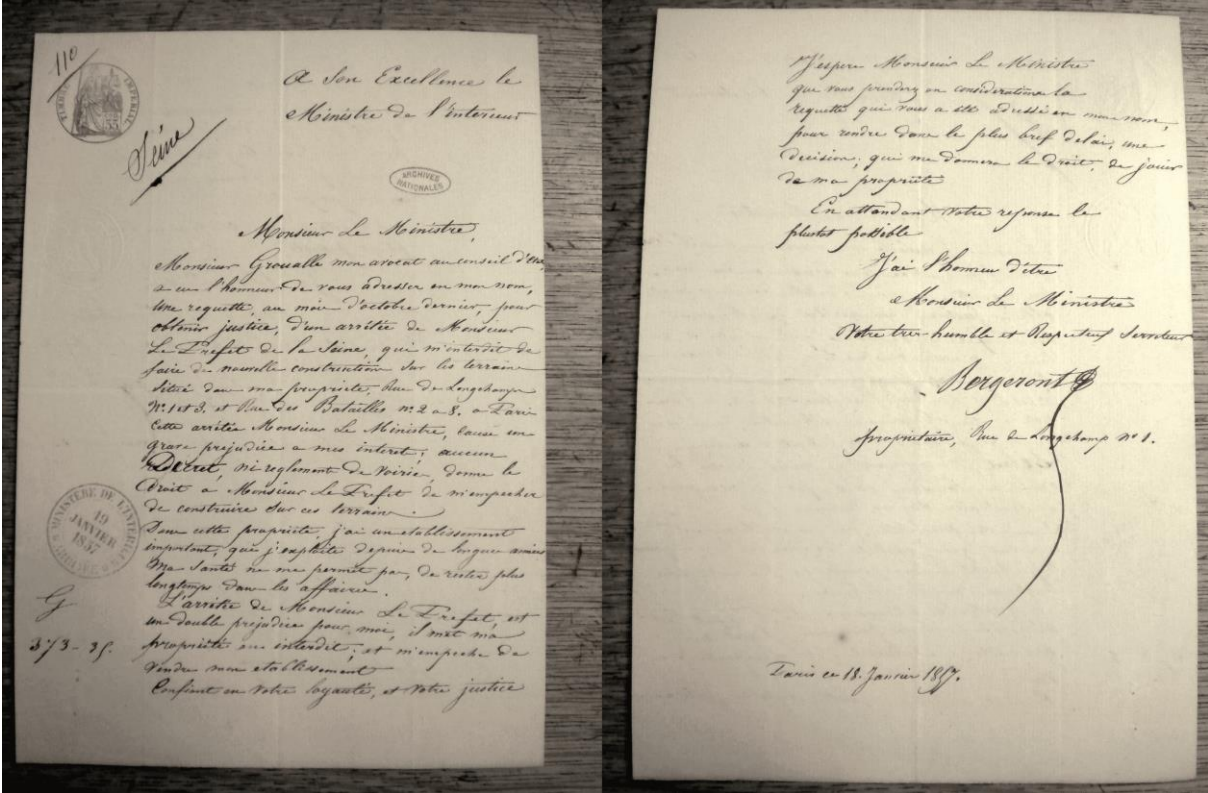 110
TIMBRE IMPERIAL
35
Seine
A Son Excellence le
Ministre de l'interieur
ARCHIVES
NATIONALES
Monsieur Le Ministre,
Monsieur Groualle mon avocat au conseil d'état,
a eu l'honneur de vous adresser en mon nom,
une requette, au mois d'octobre dernier, pour
obtenir justice, d'un arrêtée de Monsieur
Le Prefet de la Seine, qui m'interdit de
faire de nouvelle construction sur les terrains
situé dans ma propriété, Rue de Longchamps
Nos 1 et 3. et Rue des Batailles nos 2 a 8. a Paris
Cette arrêtée Monsieur Le Ministre, cause un
grave prejudice a mes interet; aucun
Decret, ni reglement de Voirie, donne le
Droit a Monsieur Le Prefet de m'empecher
de construire sur ces terrains.
Dans cette propriété, j'ai un etablissement
important, que j'exploite depuis de longues années
Ma santé ne me permet pas, de rester plus
longtemps dans les affaires.
L'arrêtée de Monsieur Le Prefet, est
un double prejudice pour moi, il met ma
propriété en interdit; et m'empeche de
vendre mon etablissement
Confient en Votre loyauté, et Votre justice
MINISTERE DE L'INTERIEUR
19
JANVIER
1857
G
373-35.
J'espere Monsieur Le Ministre
que vous prendrez en consideration la
requette qui vous a été adressé en mon nom,
pour rendre dans le plus bref delai, une
decision, qui me donnera le droit, de jouir
de ma propriété
En attendant Votre reponse le
plustot possible
J'ai l'honneur d'être
Monsieur Le Ministre
Votre tres-humble et Respectueux Serviteur
Bergeront
propriétaire, Rue de Longchamp no 1.
Paris ce 18. Janvier 1857.